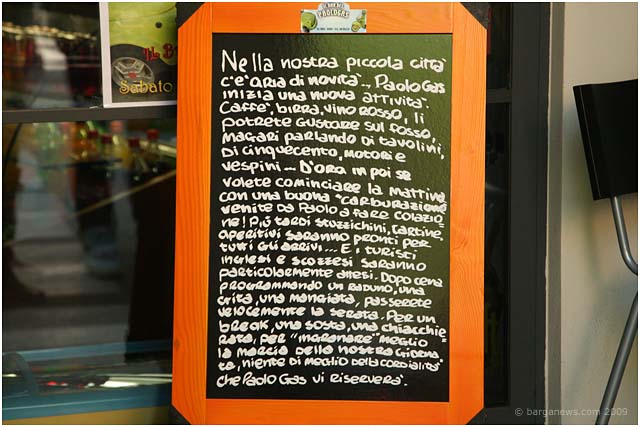 IL BAR DEL
PAOLOGAS
IL B
Sabato
Nella nostra piccola citta'
c'e' aria di novita'... Paolo Gas
inizia una nuova attivita'.
Caffe', birra, vino rosso, li
potrete gustare sul fosso,
magari parlando di tavolini,
di cinquecento, motori e
vespini... D'ora in poi se
volete cominciare la mattina
con una buona "carburazione"
venite da Paolo a fare colazio
ne! Più tardi stuzzichini, tartine,
aperitivi saranno pronti per
tutti gli arrivi... E i turisti
inglesi e scozzesi saranno
particolarmente attesi. Dopo cena
programmando un raduno, una
gita, una mangiata, passerete
velocemente la serata. Per un
break, una sosta, una chiacchie
rata, per "maranare" meglio
la marcia della nostra giorna
ta, niente di meglio della cordialita'
che Paolo Gas vi riservera'.
© barganews.com 2009